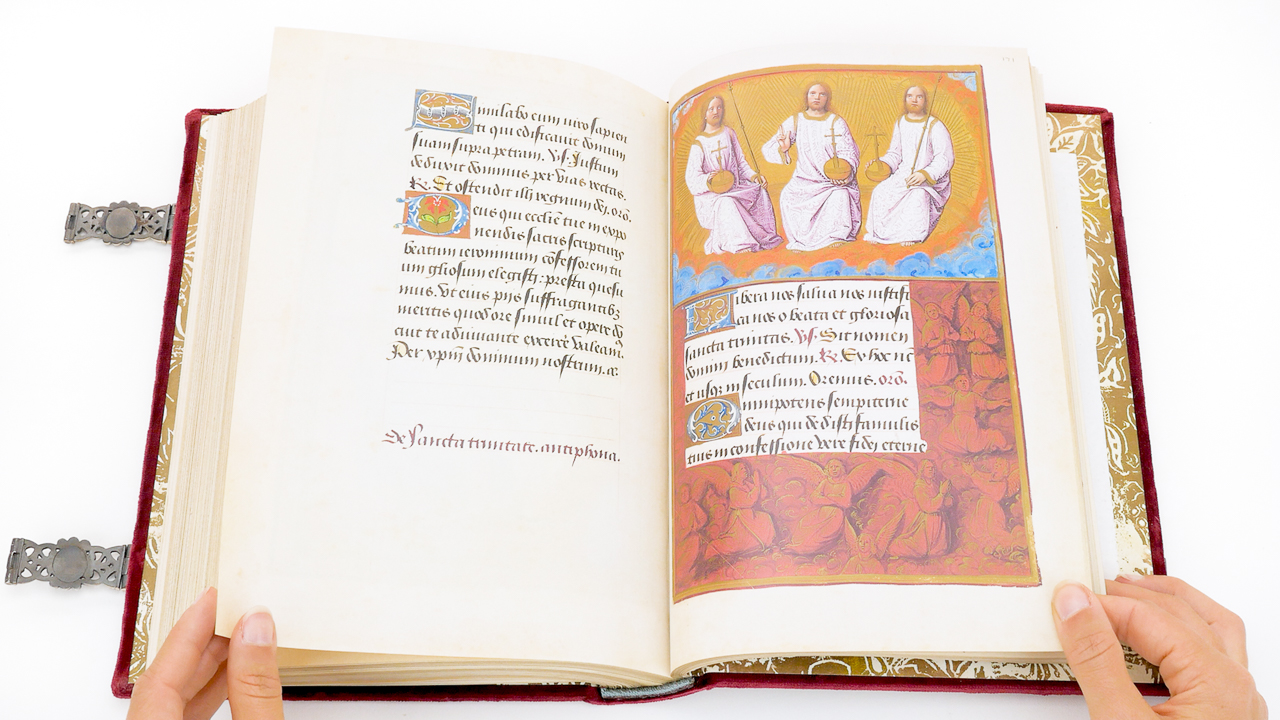 imilabo eum viro sapien
ti qui edificavit domum
suam supra petram. Vs. Justum
deduxit dominus per vias rectas.
R. Et ostendit illi regnum dei. orō.
Deus qui ecclīe tue in expo
nendis sacris scripturis
beatum ieronimum cōfessorem tu
um gliosum elegisti: presta quesu
mus. Ut eius piis suffragantibꝫ
meritis quod ore simul et opere do
cuit te adiuvante exercere valeam.
Per xpm̄ dominum nostrum. a.
De sancta trinitate. antiphona.
Libera nos salva nos iustifi
ca nos o beata et gloriosa
sancta trinitas. Vs. Sit nomen
domini benedictum. R. Ex hoc nc
et usqꝫ in seculum. Oremus. orō.
Omnipotens sempiterne
deus qui dedisti famulis
tuis in confessione vere fidei eterne